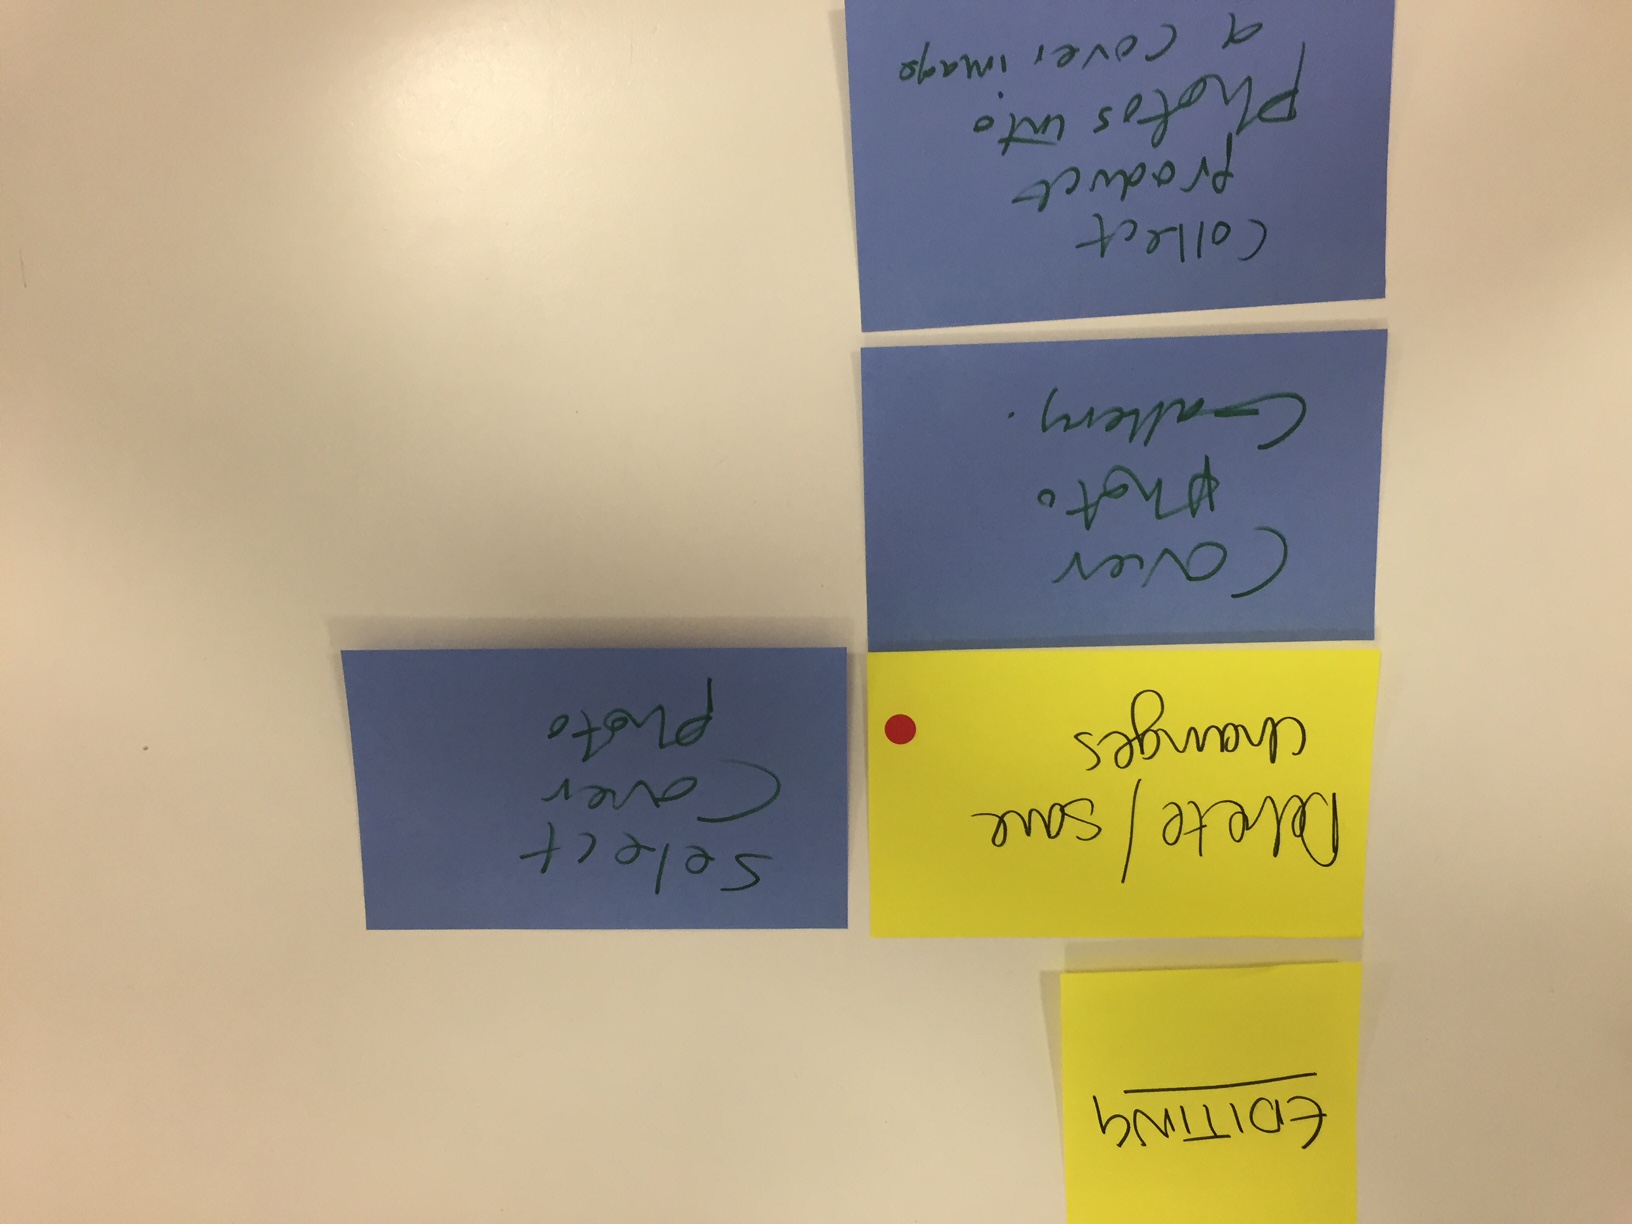 EDITING
Delete / save
changes
Select
Cover
photo
Cover
photo
Gallery.
Collect
product
photos into
a cover image